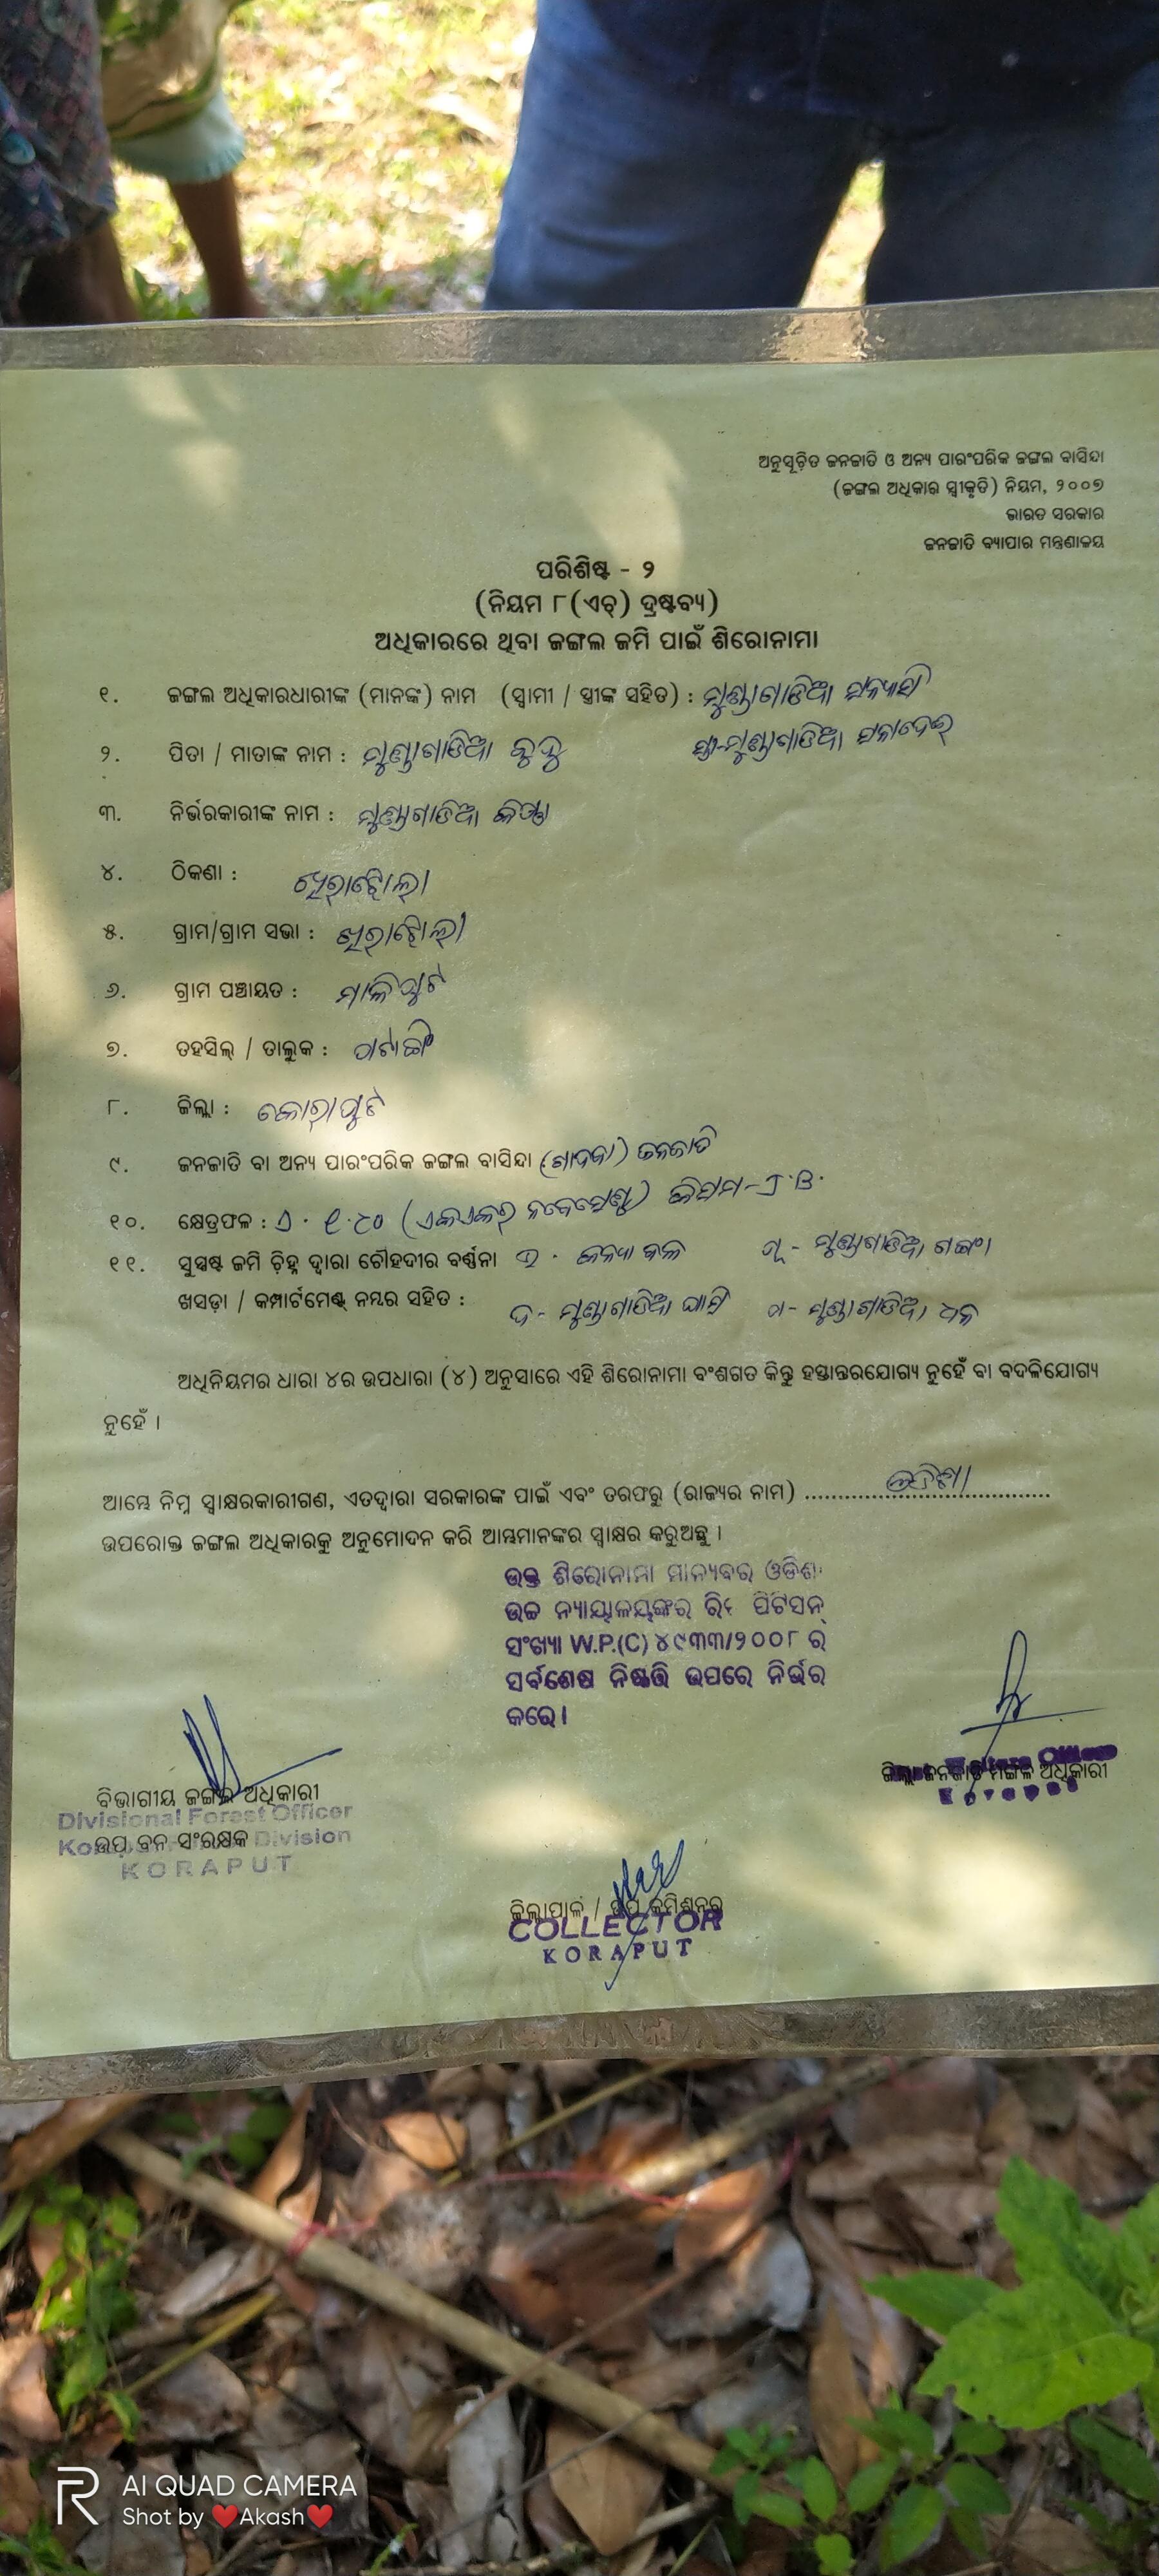 ଅନୁସୂଚିତ ଜନଜାତି ଓ ଅନ୍ୟ ପାରଂପରିକ ଜଙ୍ଗଲ ବାସିନ୍ଦା
(ଜଙ୍ଗଲ ଅଧିକାର ସ୍ୱୀକୃତି) ନିୟମ, ୨୦୦୭
ଭାରତ ସରକାର
ଜନଜାତି ବ୍ୟାପାର ମନ୍ତ୍ରଣାଳୟ
ପରିଶିଷ୍ଟ - ୨
(ନିୟମ ୮(ଏଚ୍) ଦ୍ରଷ୍ଟବ୍ୟ)
ଅଧିକାରରେ ଥିବା ଜଙ୍ଗଲ ଜମି ପାଇଁ ଶିରୋନାମା
୧. ଜଙ୍ଗଲ ଅଧିକାରଧାରୀଙ୍କ (ମାନଙ୍କ) ନାମ (ସ୍ୱାମୀ / ସ୍ତ୍ରୀଙ୍କ ସହିତ) : ମୁଣ୍ଡାଗାଡିଆ ସନ୍ୟାସି
ସ୍ତ୍ରୀ-ମୁଣ୍ଡାଗାଡିଆ
୨. ପିତା / ମାତାଙ୍କ ନାମ : ମୁଣ୍ଡାଗାଡିଆ
୩. ନିର୍ଭରକାରୀଙ୍କ ନାମ : ମୁଣ୍ଡାଗାଡିଆ
୪. ଠିକଣା :
୫. ଗ୍ରାମ/ଗ୍ରାମ ସଭା :
୬. ଗ୍ରାମ ପଞ୍ଚାୟତ : ମାଳିପୁଟ
୭. ତହସିଲ୍ / ତାଲୁକ : ପଟାଙ୍ଗୀ
୮. ଜିଲ୍ଲା : କୋରାପୁଟ
୯. ଜନଜାତି ବା ଅନ୍ୟ ପାରଂପରିକ ଜଙ୍ଗଲ ବାସିନ୍ଦା (ଗାଦବା) ଜନଜାତି
୧୦. କ୍ଷେତ୍ରଫଳ : କିସମ-
୧୧. ସୁସ୍ପଷ୍ଟ ଜମି ଚିହ୍ନ ଦ୍ୱାରା ଚୌହଦୀର ବର୍ଣ୍ଣନା ପୂ - ମୁଣ୍ଡାଗାଡିଆ ଗଙ୍ଗା
ଖସଡ଼ା / କମ୍ପାର୍ଟମେଣ୍ଟ୍ ନମ୍ବର ସହିତ : ଦ - ମୁଣ୍ଡାଗାଡିଆ ଘାସି ପ - ମୁଣ୍ଡାଗାଡିଆ ଧନ
ଅଧିନିୟମର ଧାରା ୪ର ଉପଧାରା (୪) ଅନୁସାରେ ଏହି ଶିରୋନାମା ବଂଶଗତ କିନ୍ତୁ ହସ୍ତାନ୍ତରଯୋଗ୍ୟ ନୁହେଁ ବା ବଦଳିଯୋଗ୍ୟ
ନୁହେଁ ।
ଆମ୍ଭେ ନିମ୍ନ ସ୍ୱାକ୍ଷରକାରୀଗଣ, ଏତଦ୍ୱାରା ସରକାରଙ୍କ ପାଇଁ ଏବଂ ତରଫରୁ (ରାଜ୍ୟର ନାମ) ଓଡିଶା
ଉପରୋକ୍ତ ଜଙ୍ଗଲ ଅଧିକାରକୁ ଅନୁମୋଦନ କରି ଆମ୍ଭମାନଙ୍କର ସ୍ୱାକ୍ଷର କରୁଅଛୁ ।
ଉକ୍ତ ଶିରୋନାମା ମାନ୍ୟବର ଓଡିଶା
ଉଚ୍ଚ ନ୍ୟାୟାଳୟଙ୍କର ରିଟ୍ ପିଟିସନ୍
ସଂଖ୍ୟା W.P.(C) ୪୯୩୩/୨୦୦୮ ର
ସର୍ବଶେଷ ନିଷ୍ପତ୍ତି ଉପରେ ନିର୍ଭର
କରେ।
ବିଭାଗୀୟ ଜଙ୍ଗଲ ଅଧିକାରୀ
Divisional Forest Officer
ଉପ ବନ ସଂରକ୍ଷକ Division
KORAPUT
ଜିଲ୍ଲା ଜନଜାତି ମଙ୍ଗଳ ଅଧିକାରୀ
ଜିଲ୍ଲାପାଳ / ଉପ କମିଶନର
COLLECTOR
KORAPUT
AI QUAD CAMERA
Shot by ❤️Akash❤️